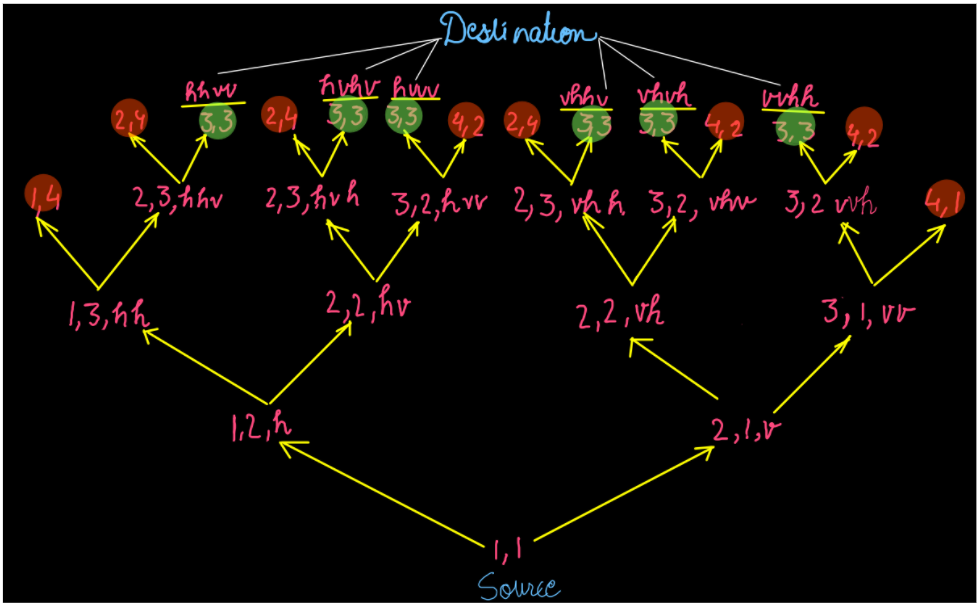 Destination
hhvv hvhv hvvv vhhv vhvh vvhh
2,4 3,3 2,4 3,3 3,3 4,2 2,4 3,3 3,3 4,2 3,3 4,2
1,4 2,3,hhv 2,3,hvh 3,2,hvv 2,3,vhh 3,2,vhv 3,2 vvh 4,1
1,3,hh 2,2,hv 2,2,vh 3,1,vv
1,2,h 2,1,v
1,1
Source